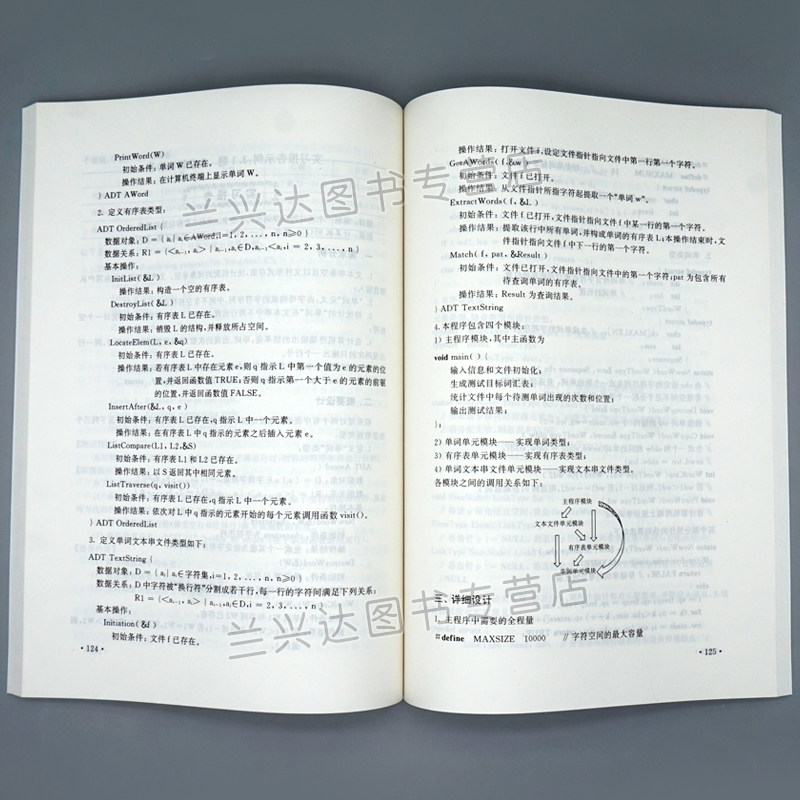 PrintWord(W)
初始条件：单词 W 已存在。
操作结果：在计算机终端上显示单词 W。
} ADT AWord
2. 定义有序表类型：
ADT OrderedList {
数据对象：D = {aᵢ | aᵢ∈AWord,i=1, 2, ..., n, n≥0}
数据关系：R1 = {<aᵢ₋₁, aᵢ> | aᵢ₋₁,aᵢ∈D,aᵢ₋₁<aᵢ,i = 2, 3, ..., n}
基本操作：
InitList(&L)
操作结果：构造一个空的有序表。
DestroyList(&L)
初始条件：有序表 L 已存在。
操作结果：销毁 L 的结构，并释放所占空间。
LocateElem(L, e, &q)
初始条件：有序表 L 已存在。
操作结果：若有序表 L 中存在元素 e，则 q 指示 L 中第一个值为 e 的元素的位
置，并返回函数值 TRUE；否则 q 指示第一个大于 e 的元素的前驱
的位置，并返回函数值 FALSE。
InsertAfter(&L, q, e)
初始条件：有序表 L 已存在，q 指示 L 中一个元素。
操作结果：在有序表 L 中 q 指示的元素之后插入元素 e。
ListCompare(L1, L2,&S)
初始条件：有序表 L1 和 L2 已存在。
操作结果：以 S 返回其中相同元素。
ListTraverse(q, visit())
初始条件：有序表 L 已存在，q 指示 L 中一个元素。
操作结果：依次对 L 中 q 指示的元素开始的每个元素调用函数 visit()。
} ADT OrderedList
3. 定义单词文本串文件类型如下：
ADT TextString {
数据对象：D = {aᵢ | aᵢ∈字符集,i=1, 2, ..., n, n≥0}
数据关系：D 中字符被“换行符”分割成若干行，每一行的字符间满足下列关系：
R1 = {<aᵢ₋₁, aᵢ> | aᵢ₋₁,aᵢ∈D,i = 2, 3, ..., n}
基本操作：
Initiation(&f)
初始条件：文件 f 已存在。
· 124 ·
操作结果：打开文件 f，设定文件指针指向文件中第一行第一个字符。
GetAWord( f,&w )
初始条件：文件 f 已打开。
操作结果：从文件指针所指字符起提取一个“单词 w”。
ExtractWords( f,&L )
初始条件：文件 f 已打开，文件指针指向文件 f 中某一行的第一个字符。
操作结果：提取该行中所有单词，并构成单词的有序表 L；本操作结束时，文
件指针指向文件 f 中下一行的第一个字符。
Match( f, pat, &Result )
初始条件：文件已打开，文件指针指向文件中的第一个字符；pat 为包含所有
待查询单词的有序表。
操作结果：Result 为查询结果。
} ADT TextString
4. 本程序包含四个模块：
1) 主程序模块，其中主函数为
void main( ) {
输入信息和文件初始化；
生成测试目标词汇表；
统计文件中每个待测单词出现的次数和位置；
输出测试结果；
};
2) 单词单元模块——实现单词类型；
3) 有序表单元模块——实现有序表类型；
4) 单词文本串文件单元模块——实现文本串文件类型。
各模块之间的调用关系如下：
主程序模块
文本文件单元模块
有序表单元模块
单词单元模块
三、详细设计
1. 主程序中需要的全程量
#define MAXSIZE 10000 // 字符空间的最大容量
· 125 ·
兰兴达图书专营店
兰兴达图书专营店